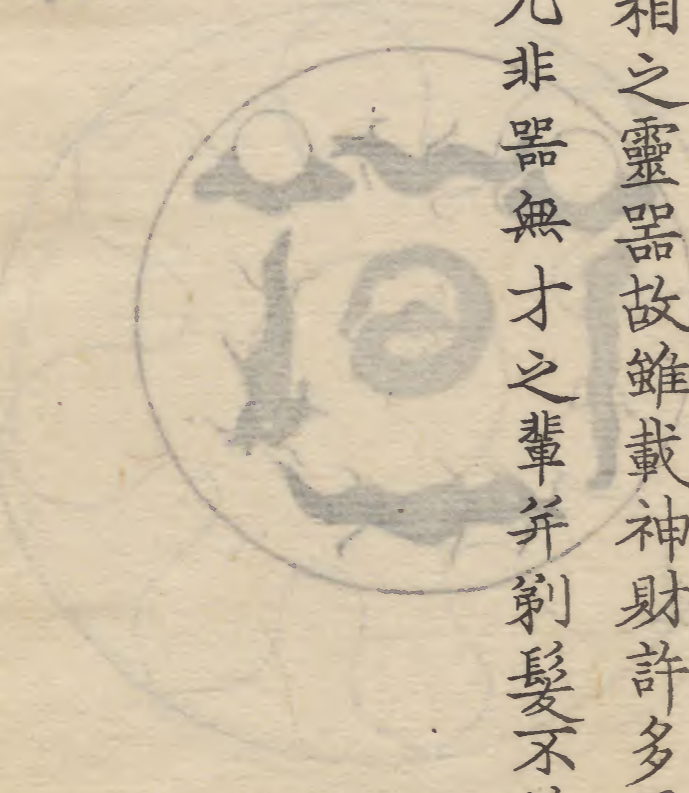 相之靈噐故雖載神財許多
凡非噐無才之輩并剃髮不